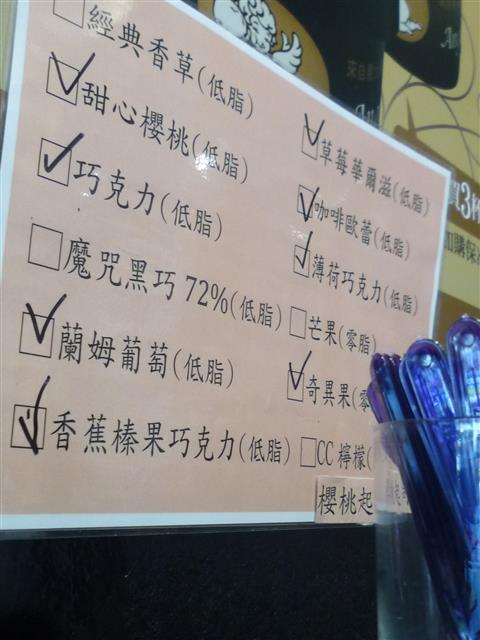 經典香草(低脂)
甜心櫻桃(低脂)
巧克力(低脂)
魔咒黑巧72%(低脂)
蘭姆葡萄(低脂)
香蕉榛果巧克力(低脂)
草莓華爾滋(低脂)
咖啡歐蕾(低脂)
薄荷巧克力(低脂)
芒果(零脂)
奇異果(零
CC檸檬(
櫻桃起
來自
買3
加購保